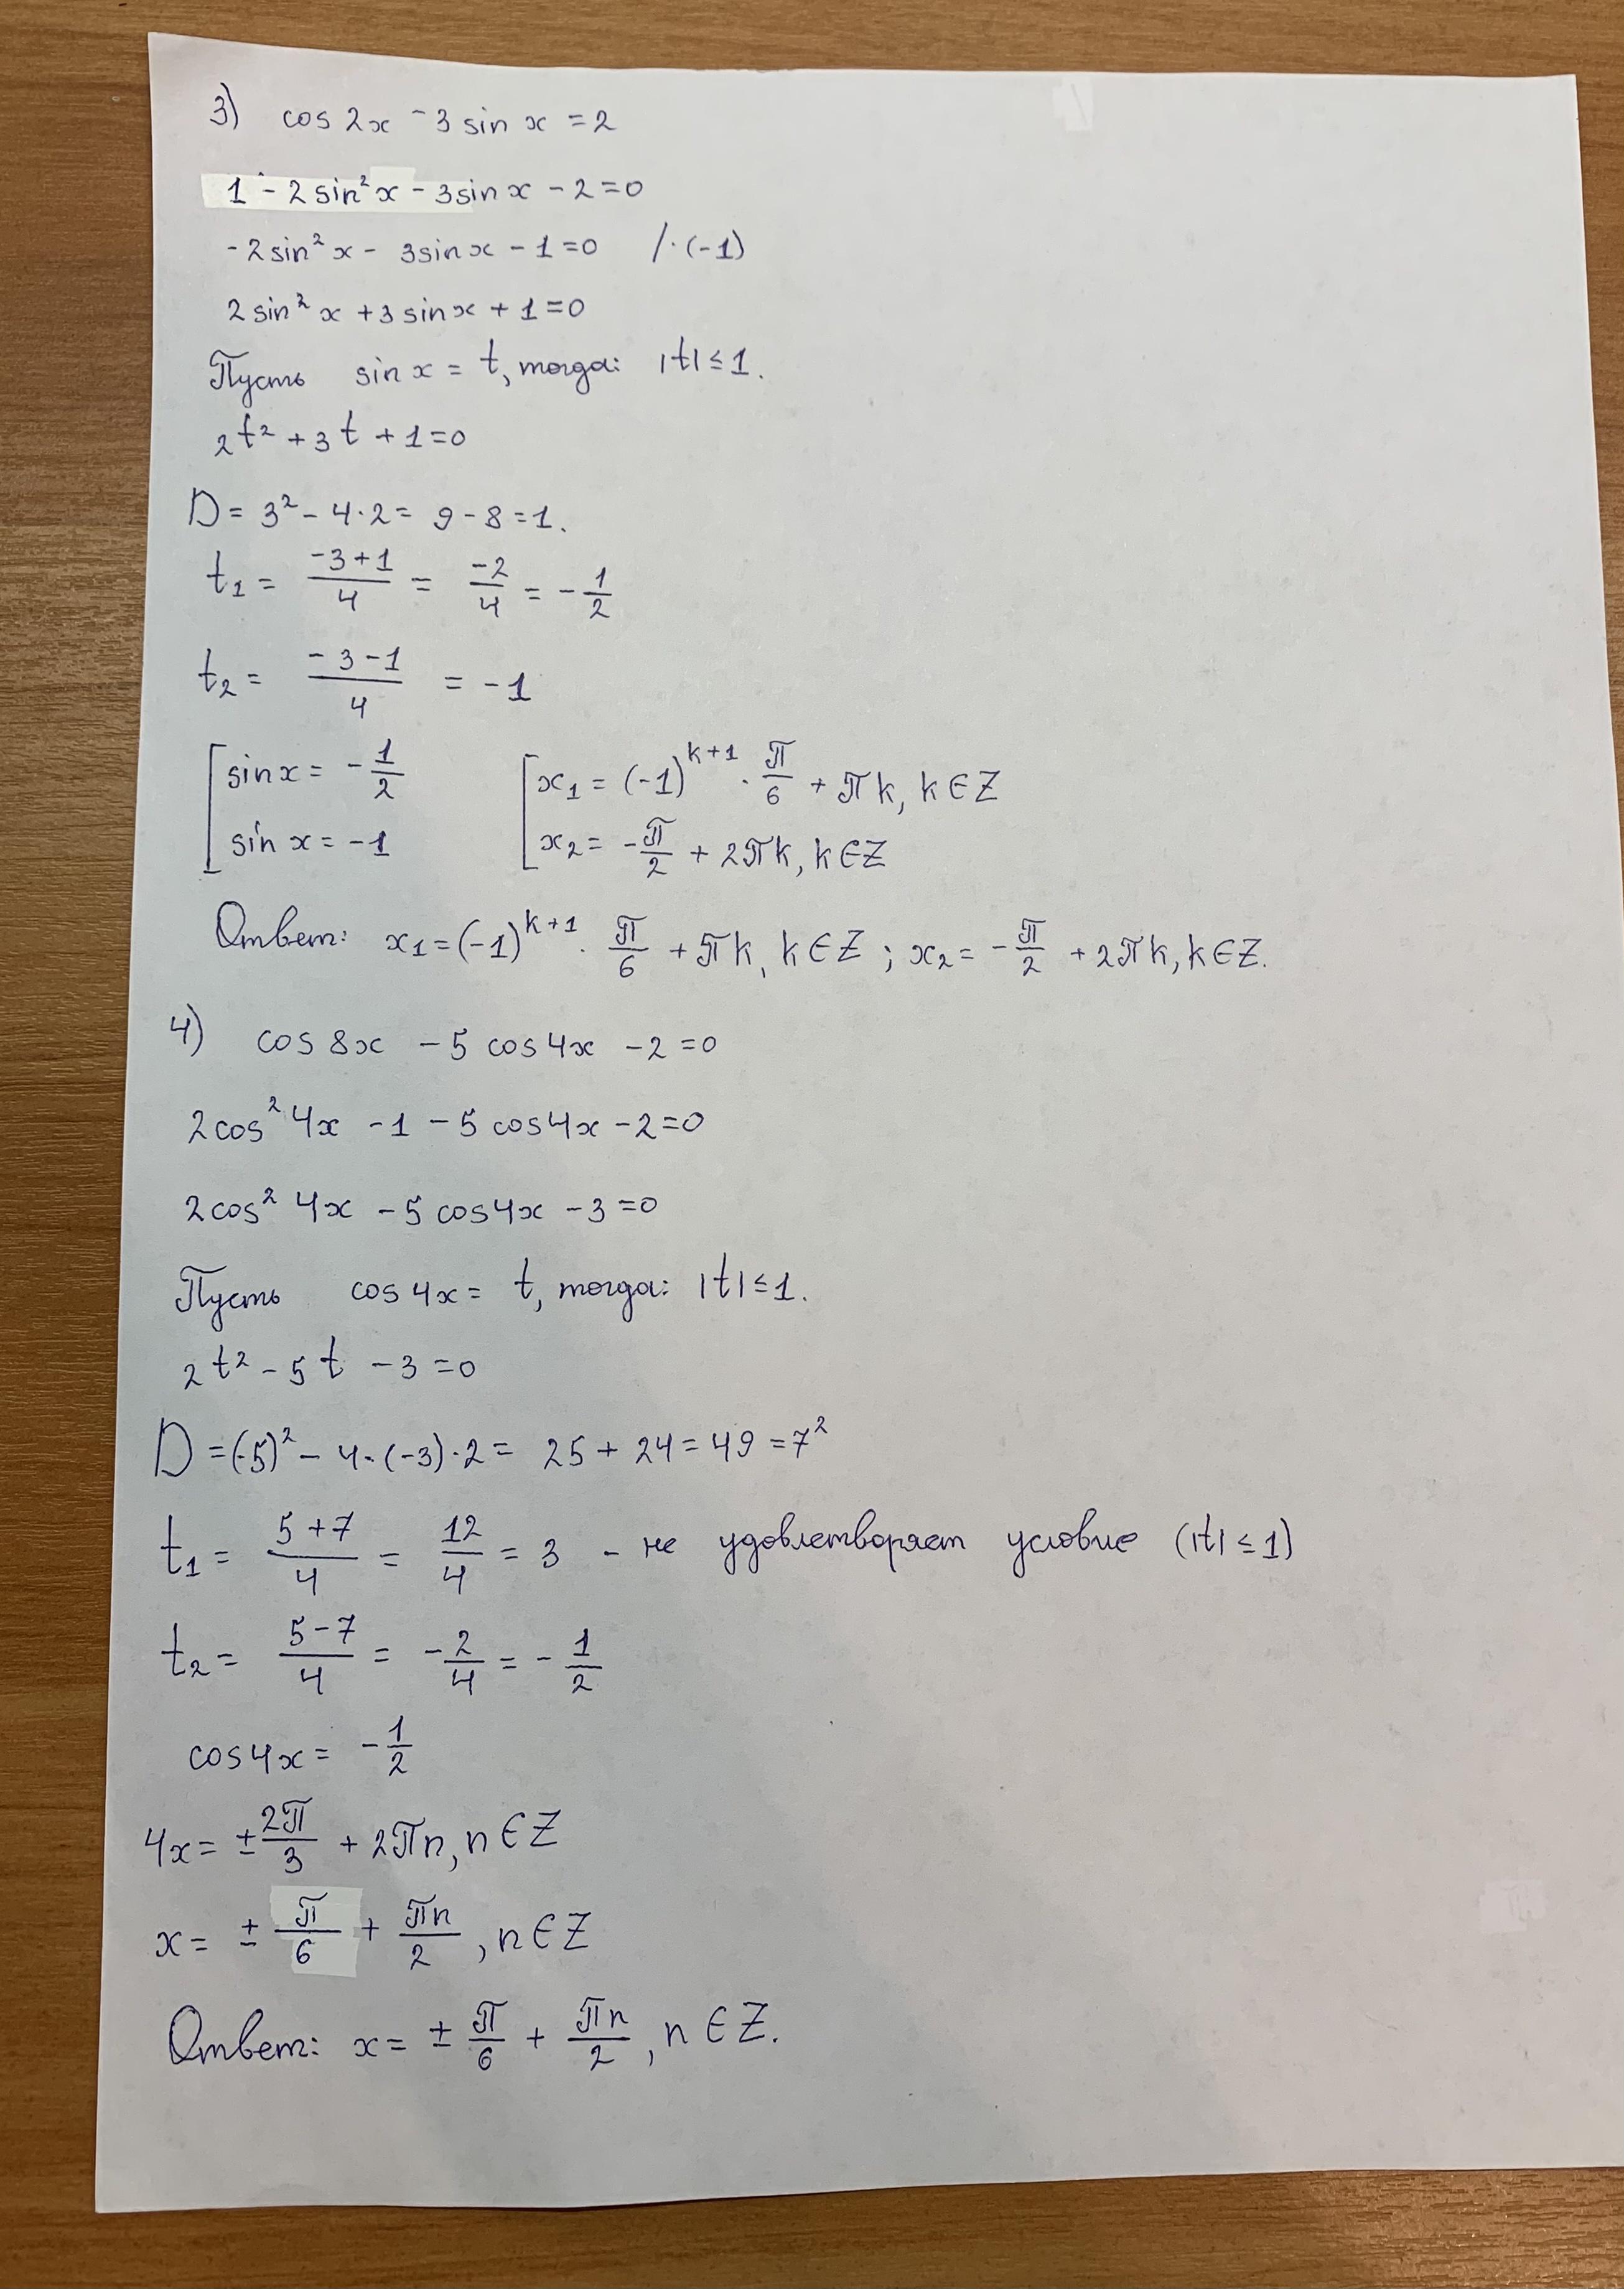 3) cos 2x - 3 sin x = 2
1 - 2 sin² x - 3 sin x - 2 = 0
- 2 sin² x - 3 sin x - 1 = 0 / · (-1)
2 sin² x + 3 sin x + 1 = 0
Пусть sin x = t, тогда: |t| ≤ 1.
2t² + 3t + 1 = 0
D = 3² - 4 · 2 = 9 - 8 = 1.
t₁ = (-3 + 1)/4 = -2/4 = - 1/2
t₂ = (-3 - 1)/4 = -1
[ sin x = - 1/2 [ x₁ = (-1)^(k+1) · π/6 + πk, k ∈ Z
[ sin x = -1 [ x₂ = - π/2 + 2πk, k ∈ Z
Ответ: x₁ = (-1)^(k+1) · π/6 + πk, k ∈ Z ; x₂ = - π/2 + 2πk, k ∈ Z.
4) cos 8x - 5 cos 4x - 2 = 0
2 cos² 4x - 1 - 5 cos 4x - 2 = 0
2 cos² 4x - 5 cos 4x - 3 = 0
Пусть cos 4x = t, тогда: |t| ≤ 1.
2t² - 5t - 3 = 0
D = (-5)² - 4 · (-3) · 2 = 25 + 24 = 49 = 7²
t₁ = (5 + 7)/4 = 12/4 = 3 - не удовлетворяет условие (|t| ≤ 1)
t₂ = (5 - 7)/4 = - 2/4 = - 1/2
cos 4x = - 1/2
4x = ± 2π/3 + 2πn, n ∈ Z
x = ± π/6 + πn/2, n ∈ Z
Ответ: x = ± π/6 + πn/2, n ∈ Z.